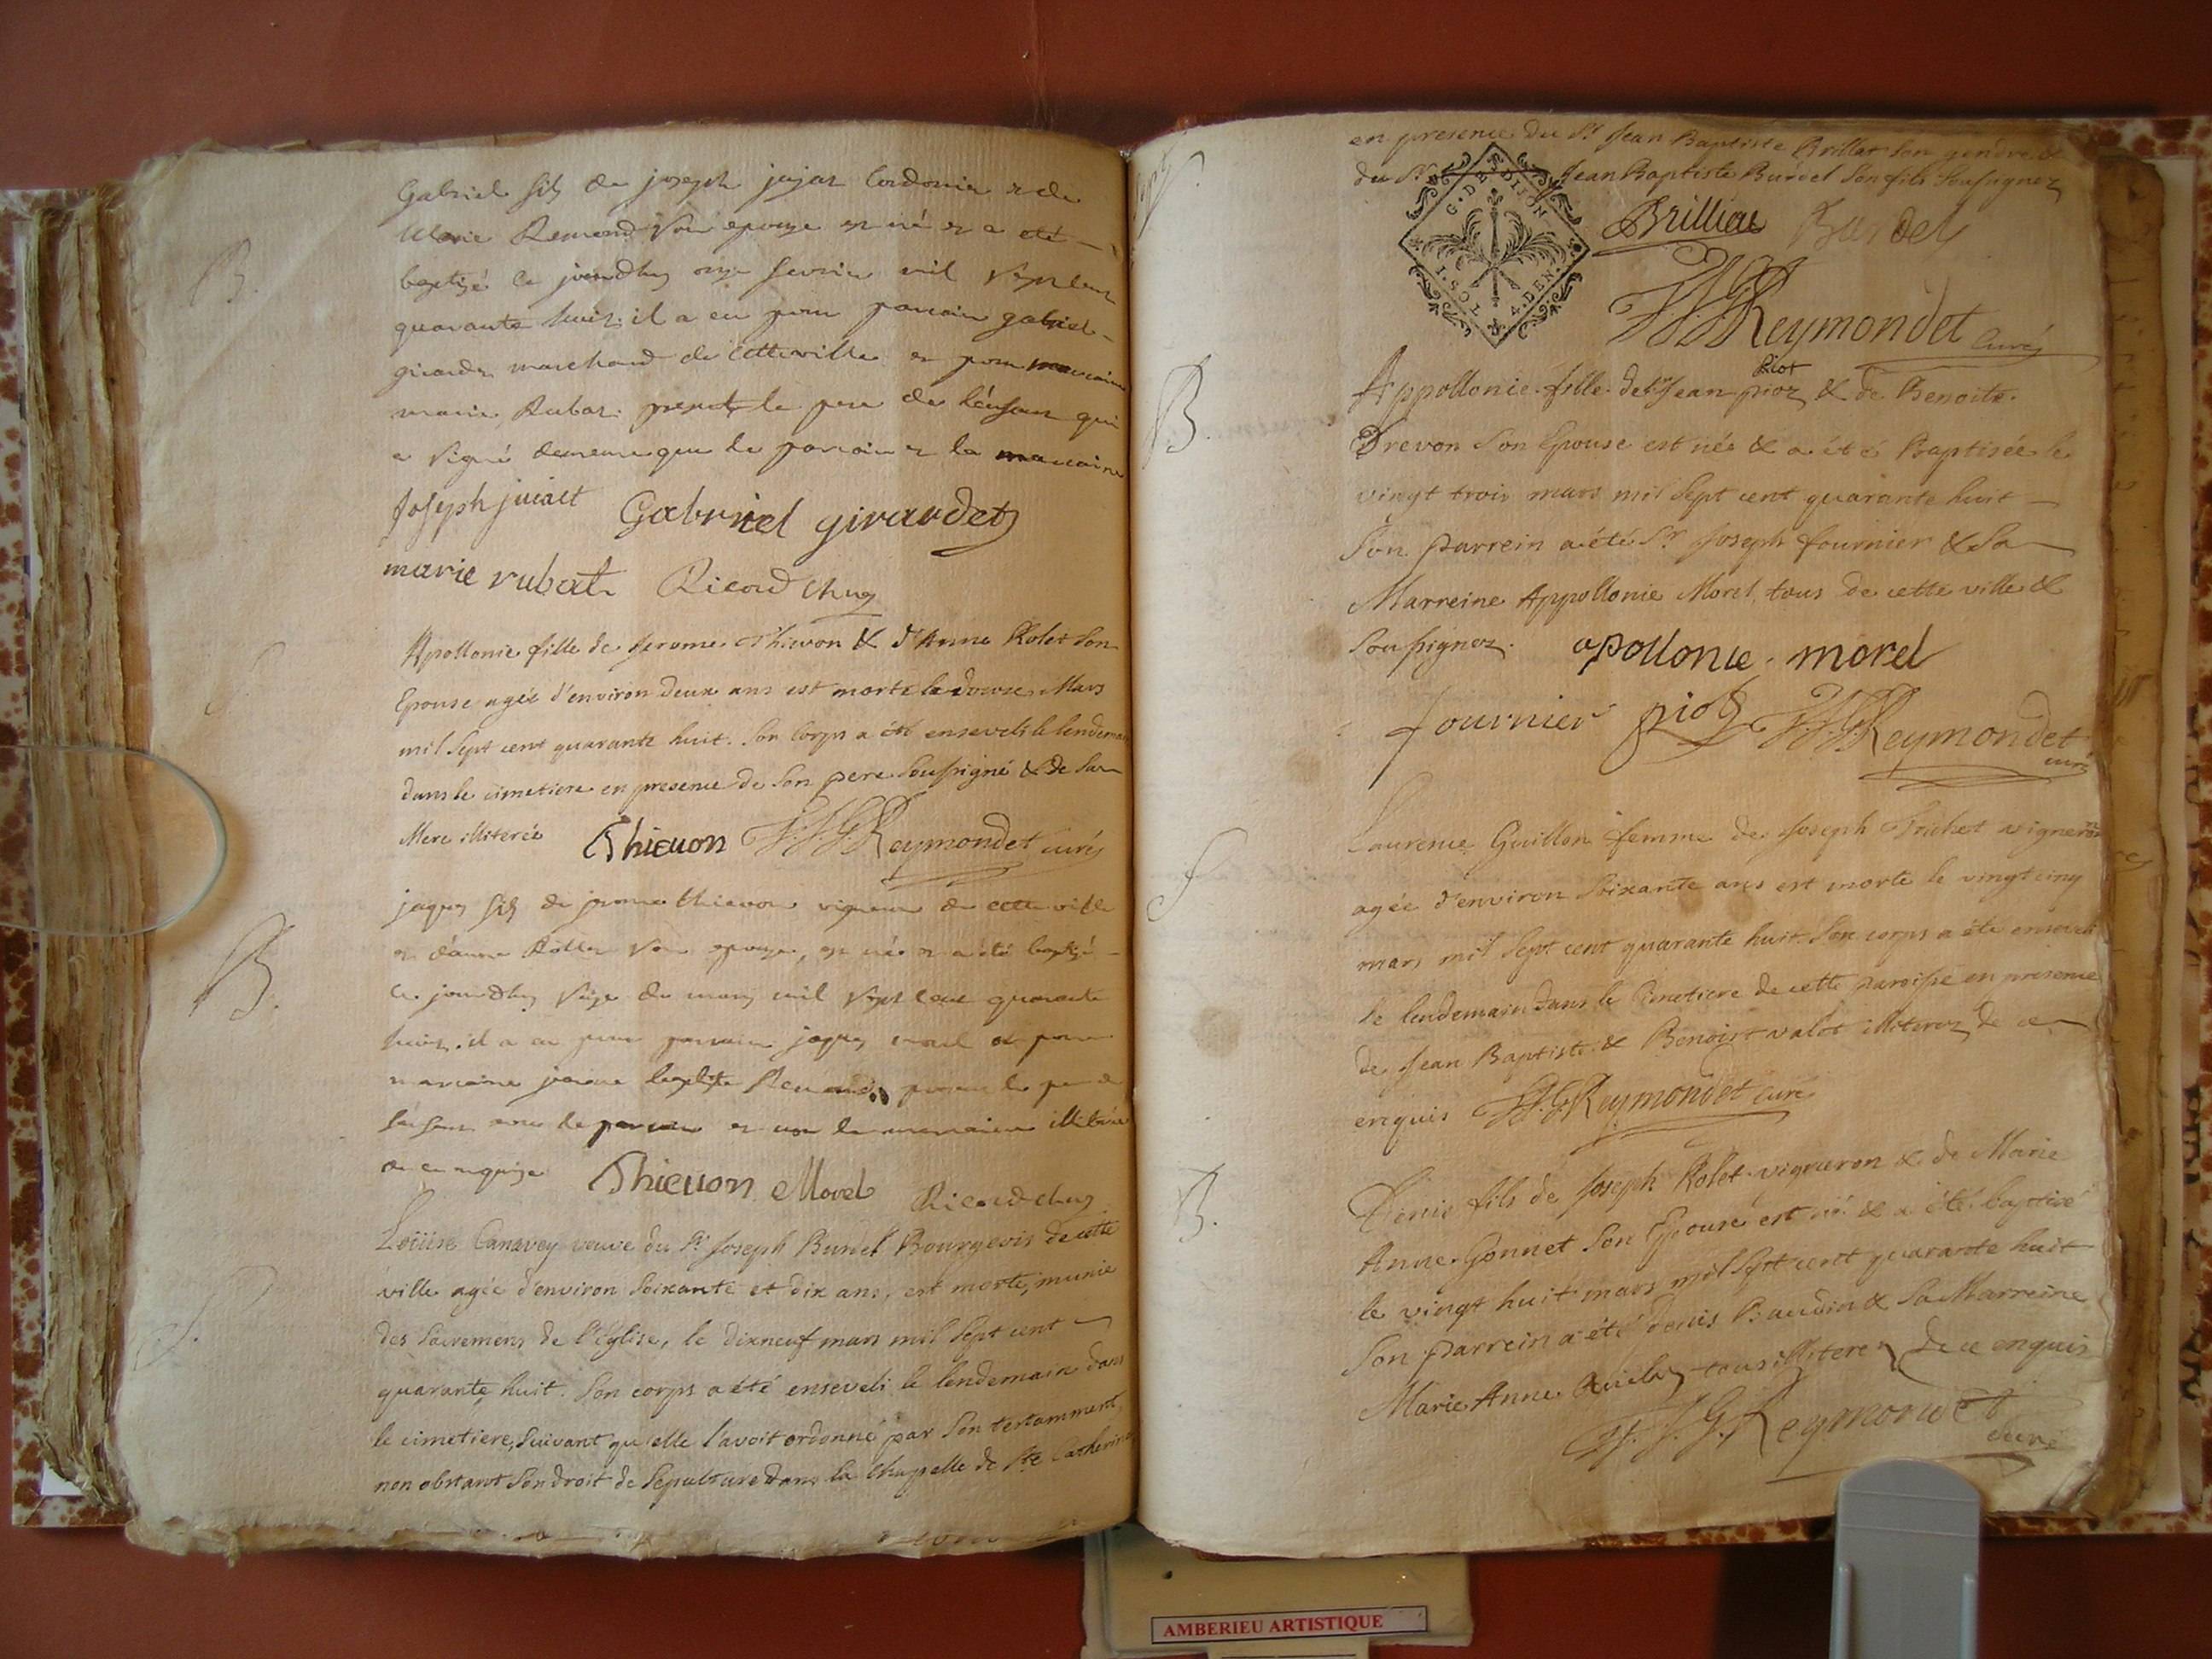 Gabriel fils de joseph jujat Cordonier et de
Marie Remond son epouse est né et a eté
baptizé ce jourdhuy onze fevrier mil sept cent
quarante huit. il a eu pour parrain gabriel
girardet marchand de cette ville et pour marraine
marie Rubat. present le pere de l'enfant qui
a signé de meme que le parrain et la marraine
Joseph juiact Gabriel girardet
marie rubat Ricoud
B.
Apollonie fille de Jerome Thievon & d'Anne Rolet son
Epouse agée d'environ deux ans est morte le douze Mars
mil sept cent quarante huit. Son Corps a été enseveli le lendemain
dans le cimetiere en presence de son pere soussigné & de sa
Mere illiterée Thievon J.J.G. Reymondet curé
S
jaques fils de jerome thievon vigneron de cette ville
et d'anne Rollet son epouse, est né et a été baptizé
ce jourdhuy seize du mars mil sept cent quarante
huit. il a eu pour parrain jaques morel et pour
marraine jeanne baptiste present le pere de
l'enfant avec le parrain et non la marraine illiterée
de ce requise Thievon Morel Ricoud
B.
Loüise Canavey veuve du Sr. Joseph Burdet Bourgeois de cette
ville agée d'environ soixante et dix ans, est morte, munie
des sacremens de l'Eglise, le dixneuf mars mil sept cent
quarante huit. Son corps a été enseveli le lendemain dans
le cimetiere, suivant qu'elle l'avoit ordonné par son testamment,
non obstant son droit de sepulture dans la Chappelle de Ste Catherine
S.
en presence du Sr. Jean Baptiste Brillat son gendre &
du Sr. Jean Baptiste Burdet son fils soussignez
G. DE DIJON
1. SOL 4. DEN.
Brilliat Burdet
J.J.G. Reymondet Curé
Piot
Appollonie fille de Sr Jean pioz & de Benoite
Drevon son Epouse est née & a été Baptisée le
vingt trois mars mil sept cent quarante huit
Son parrein a été Sr. Joseph fournier & sa
Marreine Appollonie Morel, tous de cette ville &
soussignez. apollonie . morel
fournier piot J.J.G. Reymondet
curé
B.
Laurence Guillon femme de Joseph Trichet vigneron
agée d'environ soixante ans est morte le vingt cinq
mars mil sept cent quarante huit. Son corps a été enseveli
le lendemain dans le Cimetiere de cette paroisse en presence
de Jean Baptiste & Benoist valot illiterez de ce
enquis J.J.G. Reymondet curé
S
Denis fils de Joseph Rolet vigneron & de Marie
Anne Gonnet son Epouse est né & a été baptisé
le vingt huit mars mil sept cent quarante huit
Son parrein a été denis Baudin & sa Marreine
Marie Anne tous illiterez de ce enquis
J.J.G. Reymondet
Curé
B.
AMBERIEU ARTISTIQUE